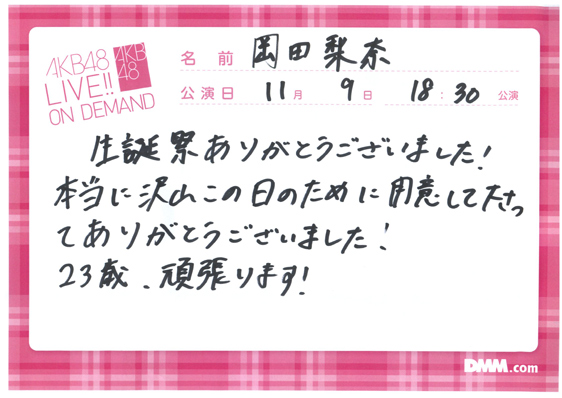 AKB48
LIVE!!
ON DEMAND
AKB
48
名前 岡田梨奈
公演日 11月 9日 18:30 公演
生誕祭ありがとうございました!
本当に沢山この日のために用意して下さっ
てありがとうございました!
23歳、頑張ります!
DMM.com